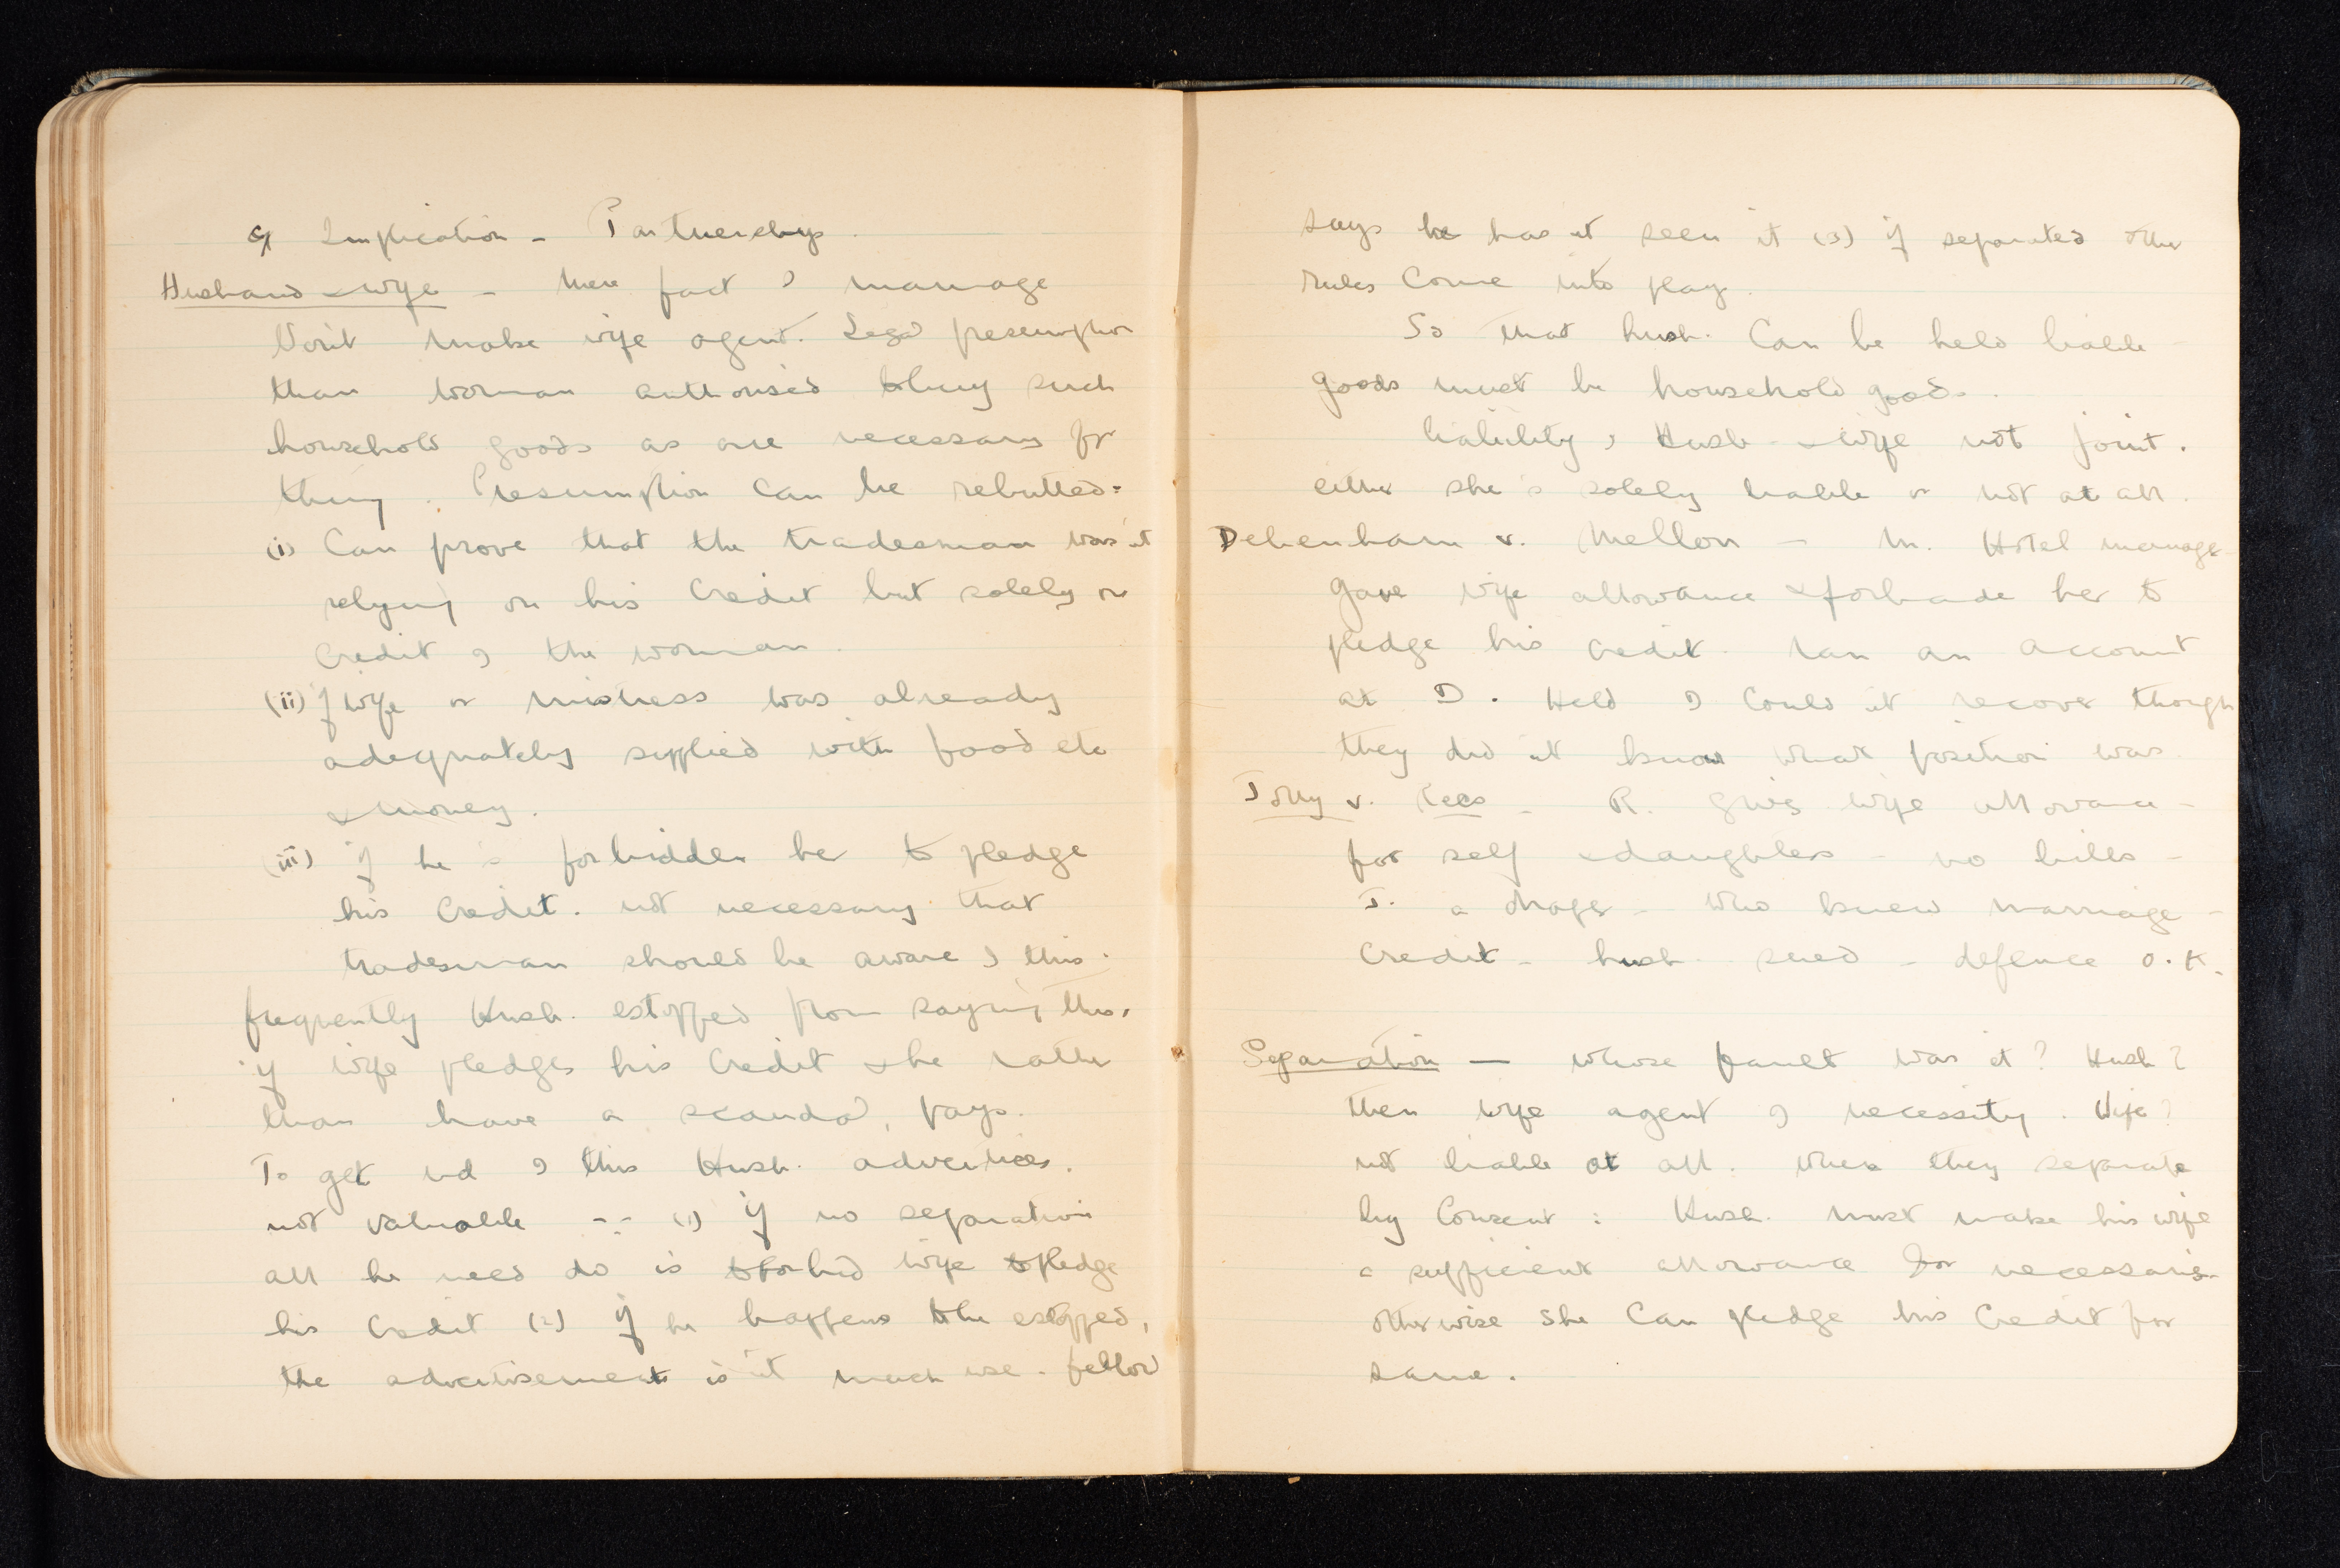 of Implication – Partnerships.
Husband & wife – mere fact of marriage
don't make wife agent. Legal presumption
than woman authorised to buy such
household goods as are necessary for
them. Presumption can be rebutted:
(i) Can prove that the tradesman wasn't
relying on his credit but solely on
credit of the woman.
(ii) If wife or mistress was already
adequately supplied with food etc
& money.
(iii) if he's forbidden her to pledge
his credit. not necessary that
tradesman should be aware of this.
frequently Husb. estopped from saying this.
if wife pledges his credit & he rather
than have a scandal, pays.
To get rid of this Husb. advertises.
not valuable -- (1) if no separation
all he need do is to forbid wife to pledge
his credit (2) if he happens to be estopped,
the advertisement isn't much use. fellow
says he hasn't seen it (3) if separated other
rules come into play.
So that husb. can be held liable –
goods must be household goods.
liability of Husb – & wife not joint.
either she's solely liable or not at all.
Debenham v. Mellon – M. Hotel manager
gave wife allowance & forbade her to
pledge his credit. ran an account
at D. Held D couldn't recover though
they didn't know what position was
Jolly v. Rees – R. gives wife allowance –
for self & daughters – no bills –
J. a draper – who knew marriage –
credit – husb. sued – defence O.K.
Separation — whose fault was it? Husb?
then wife agent of necessity. Wife?
not liable at all. When they separate
by consent: Husb. must make his wife
a sufficient allowance for necessaries
otherwise she can pledge his credit for
same.